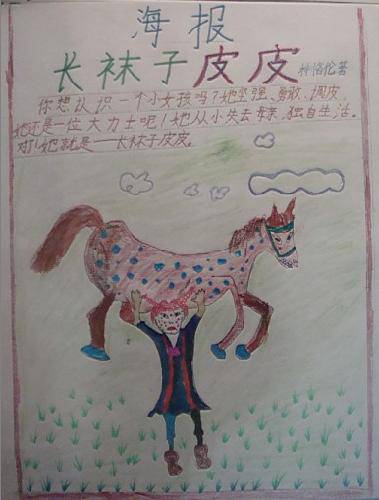 海报
长袜子皮皮 林格伦著
你想认识一个小女孩吗?她坚强、勇敢、调皮,
她还是一位大力士呢!她从小失去母亲,独自生活。
对!她就是——长袜子皮皮。